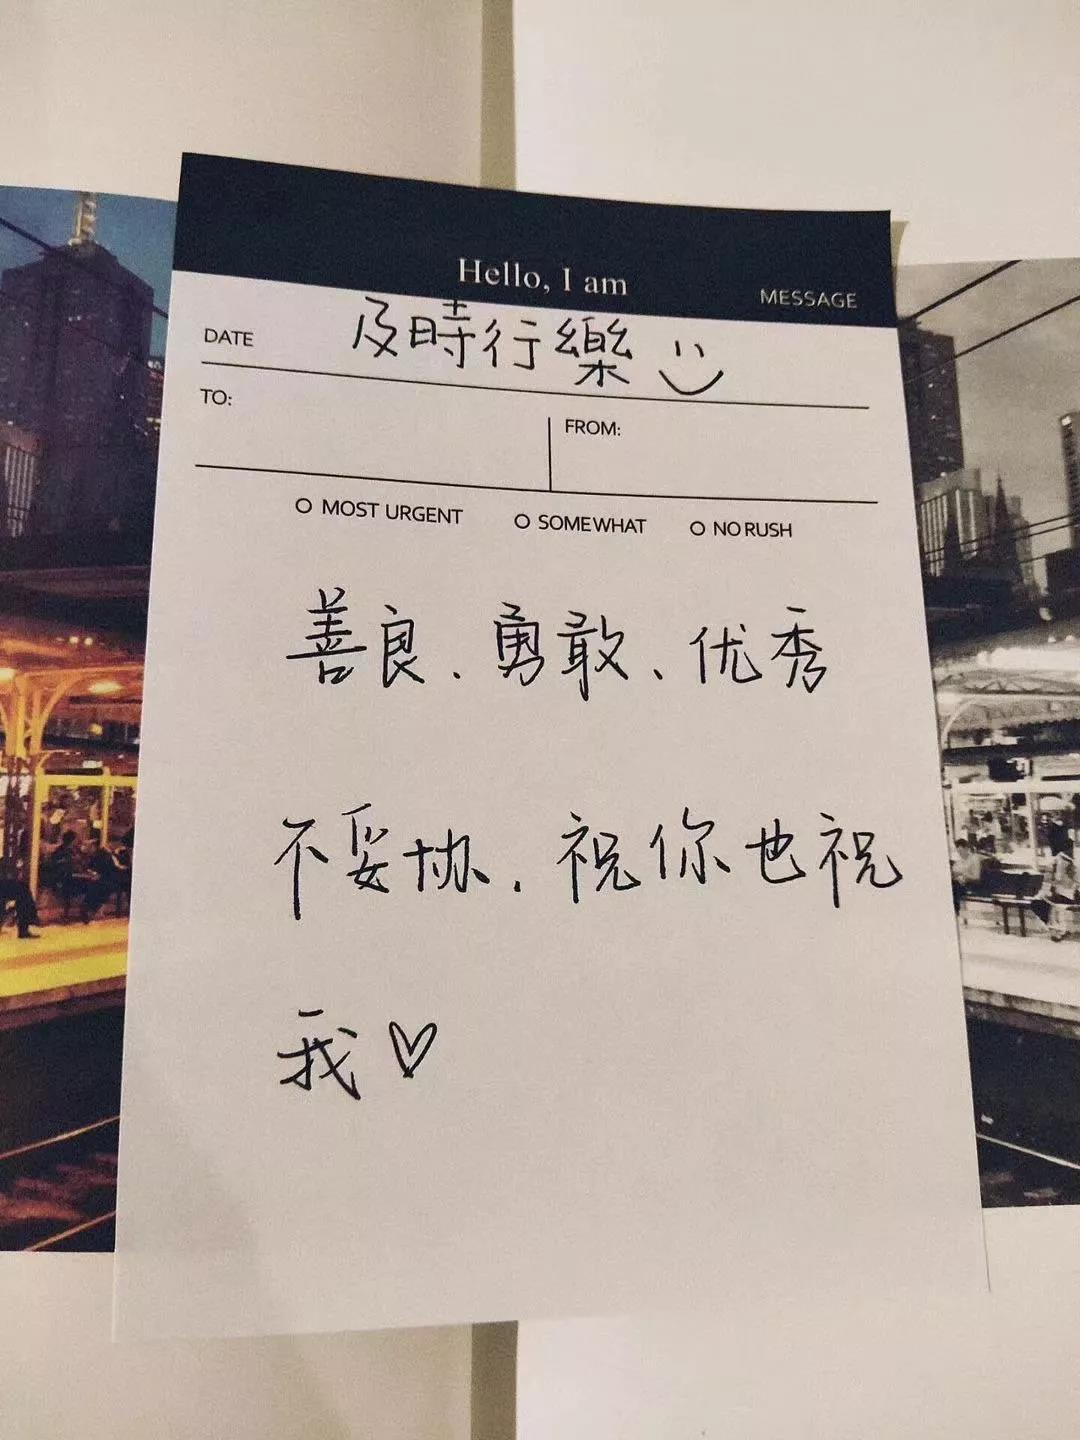 Hello, I am
MESSAGE
DATE 及時行樂
TO:
FROM:
MOST URGENT SOMEWHAT NO RUSH
善良、勇敢、优秀
不妥协、祝你也祝
我♡